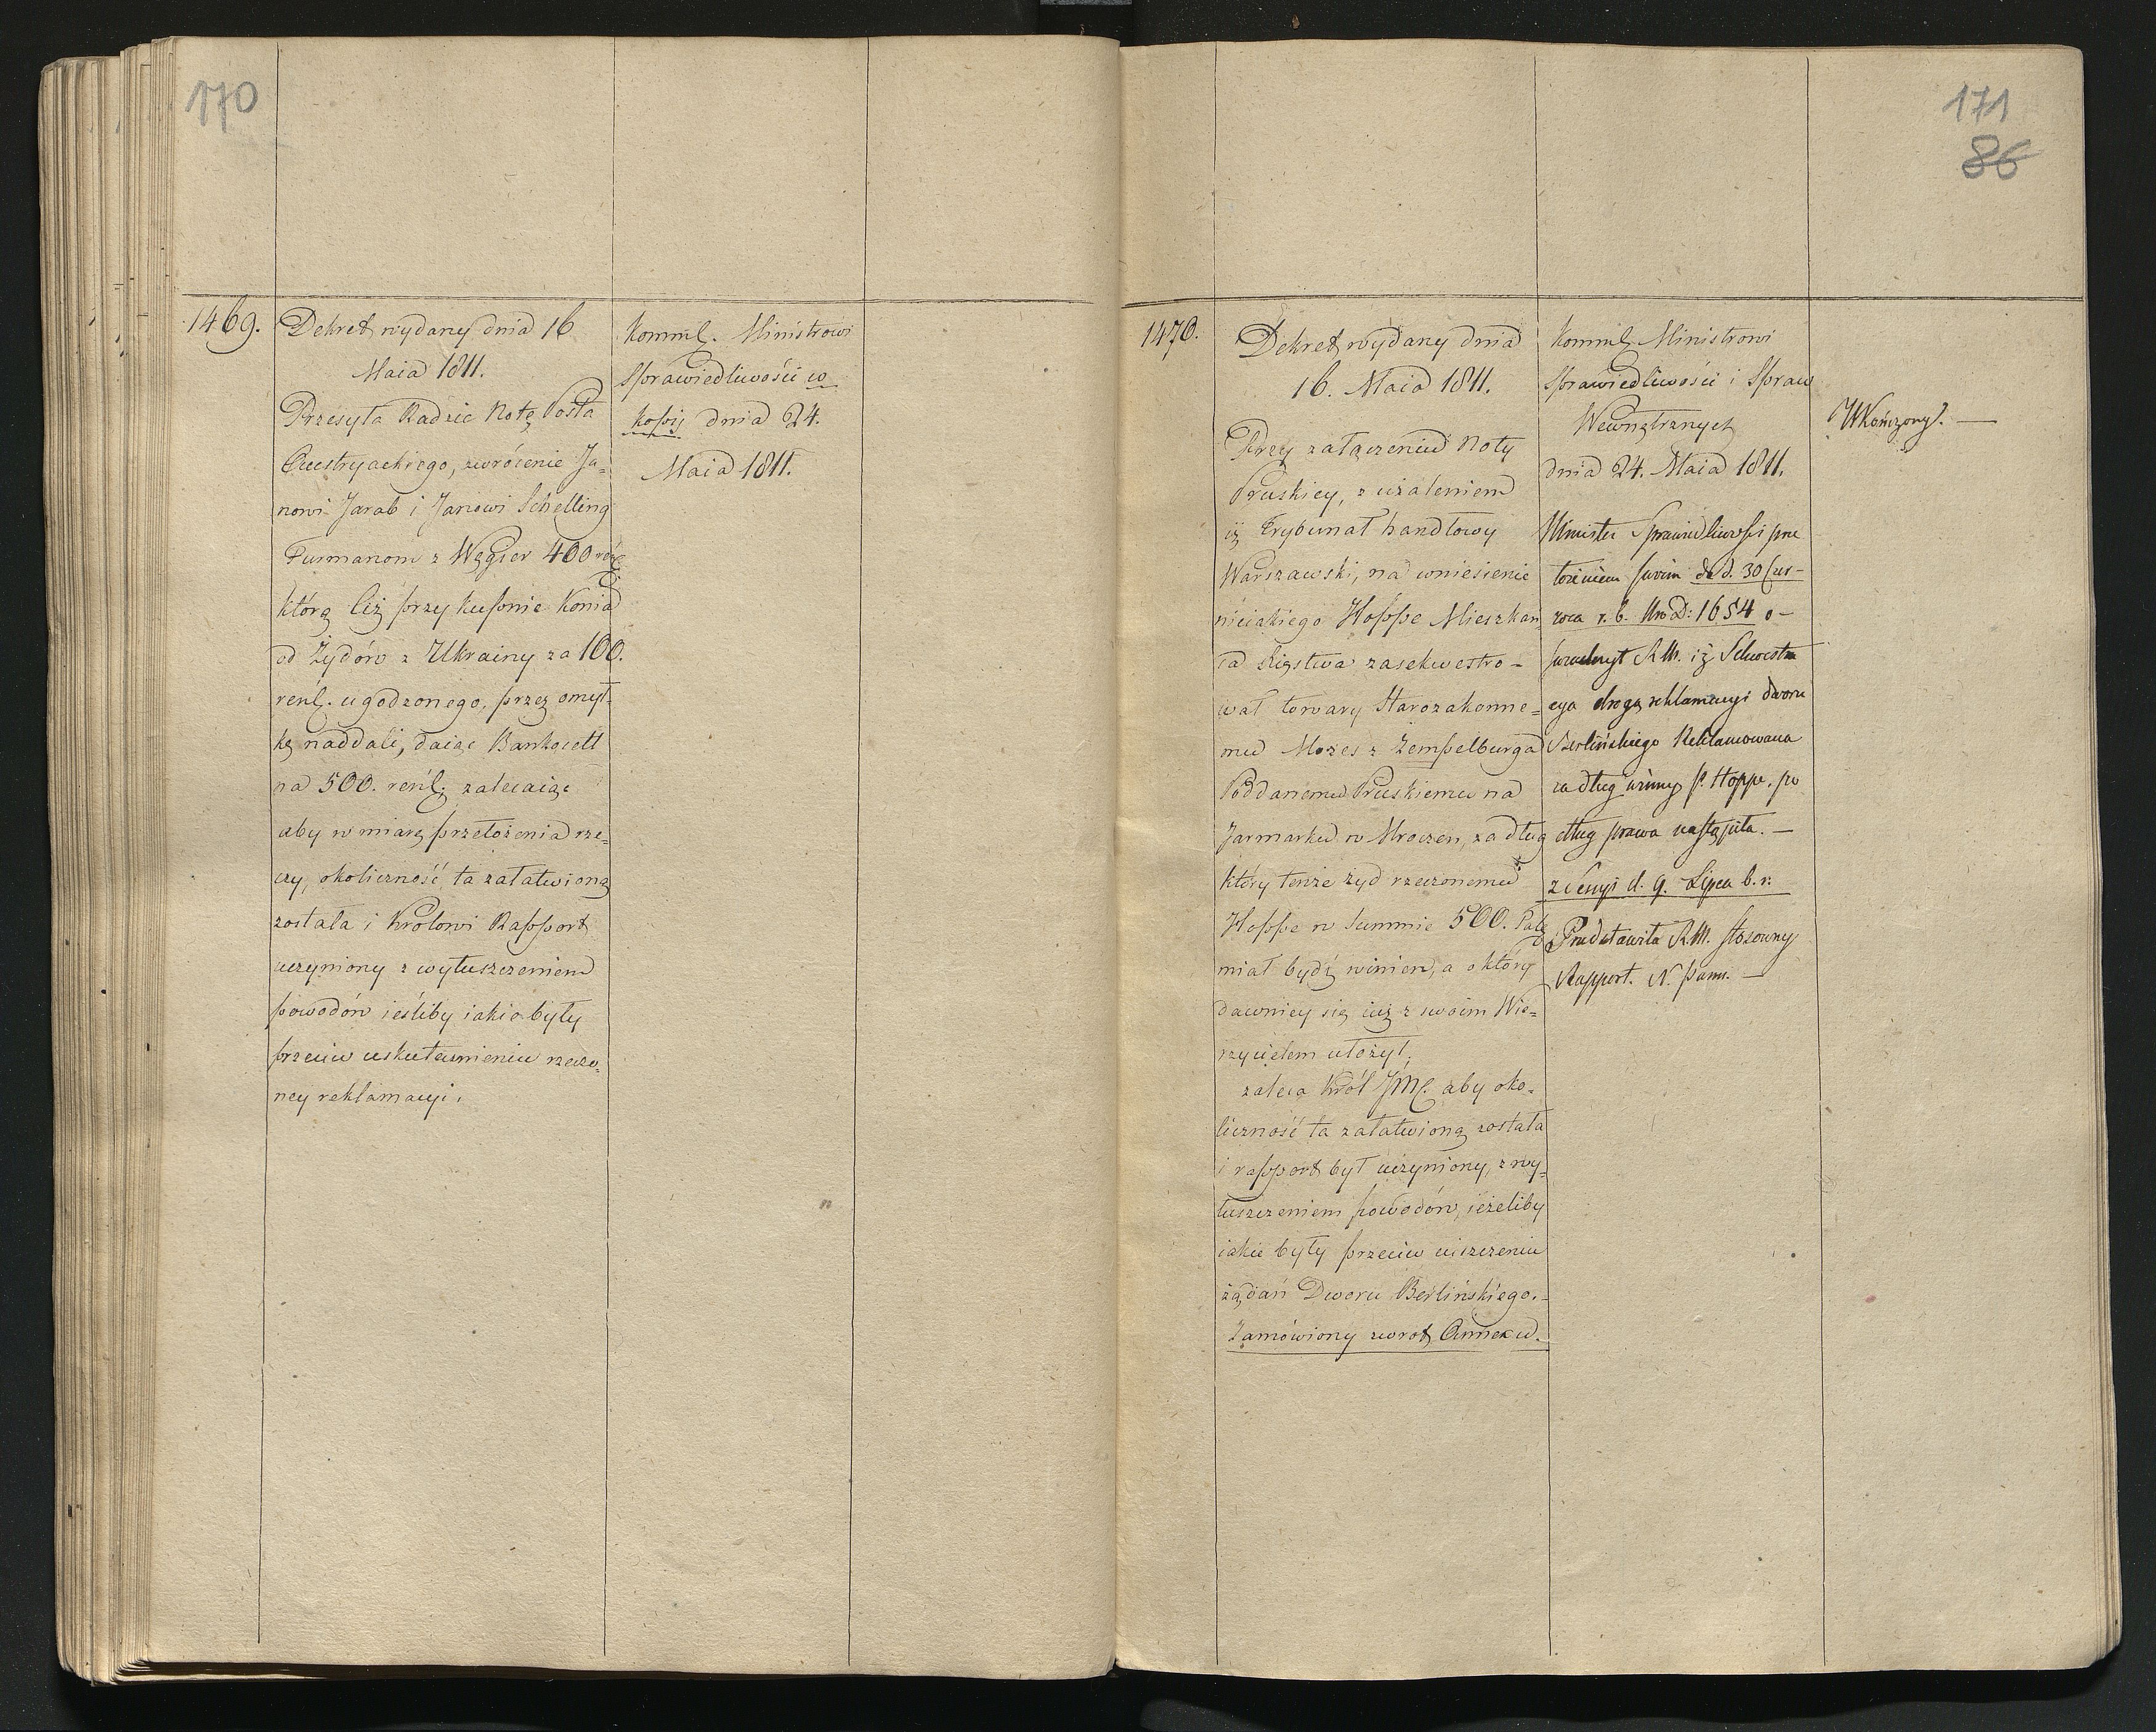 170
1469.
Dekret wydany dnia 16
Maia 1811.
Przesyła Radzie Notę Posła
Austryackiego, zwrócenie Ja=
nowi Jarab i Janowi Schelling
Furmanom z Węgier 400 reńl.
którą ciż przy kupnie Konia
od Żydów z Ukrainy za 100.
reńl. ugodzonego, przez omył=
kę naddali, daiąc Bankocetl
na 500. reńl. zalecaiąc
aby w miarę przełożenia rze=
czy, okoliczność ta załatwioną
została i Królowi Rapport
uczyniony z wyłuszczeniem
powodów ieśliby iakie były
przeciw uskutecznieniu rzeczo=
ney reklamacyi.
Komml. Ministrowi
Sprawiedliwości w
kopij dnia 24.
Maia 1811.
171
86
1470.
Dekret wydany dnia
16. Maia 1811.
Przy załączeniu Noty
Pruskiey, z użaleniem
iż Trybunał handlowy
Warszawski, na wniesienie
nieiakiego Hoppe Mieszkań
ca Xięstwa zasekwestro=
wał towary Starozakonne=
mu Mozes z Zempelburga
Poddanemu Pruskiemu na
Jarmarku w Mroczen, za dług
który tenże żyd rzeczonemu
Hoppe w Summie 500. Tal.
miał bydź winien, a o który
dawniey się iuż z swoim Wie=
rzycielem ułożył;
zaleca Król JMć. aby oko=
liczność ta załatwioną została
i rapport był uczyniony, z wy=
łuszczeniem powodów, ieżeliby
iakie były przeciw uiszczeniu
żądań Dworu Berlińskiego.=
Zamówiony zwrot Annexu.
Komml. Ministrowi
Sprawiedliwości i Spraw
Wewnętrznych
dnia 24. Maia 1811.
Minister Sprawiedliwości prze
łożeniem swoim de d. 30 Czer-
wca r. b. Nro D: 1654 o-
świadczył R.M. iż Sekwestra
cya drogą reklamacyi dworu
Berlińskiego Reklamowana
za dług winny P. Hoppe, po
dług prawa nastąpiła. —
z Sessyi d. 9. Lipca b. r.
Przedstawiła R.M. stosowny
Rapport. N. Panu. —
Ukończony. —